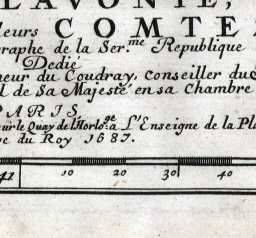 LAVONIE,
leurs COMTE
graphe de la Ser.me Republique
Dedié
neur du Coudray, Conseiller du
l de Sa Majesté en sa Chambre
PARIS,
sur le Quay de l'Horloge a L'Enseigne de la Pla
e du Roy 1687.
41 10 20 30 40